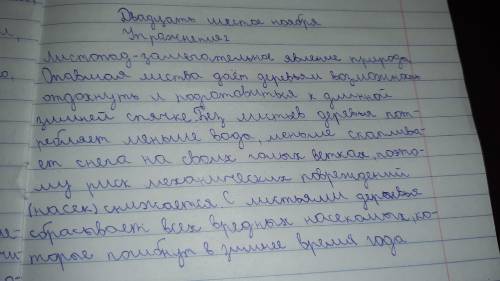 Двадцать шестое ноября
Упражнение
листопад-замечательное явление природа
Опавшая листва даёт деревьям возможность
отдохнуть и подготовиться к длинной
зимней спячке. Без листьев деревья пот-
ребляет меньше вода, меньше скаплива-
ет снега на своих голых ветках, поэто-
му риск механических повреждений
(насек) снижается С листьями деревья
сбрасывает всех вредных насекомых, ко-
торые погибнут в зимнее время года